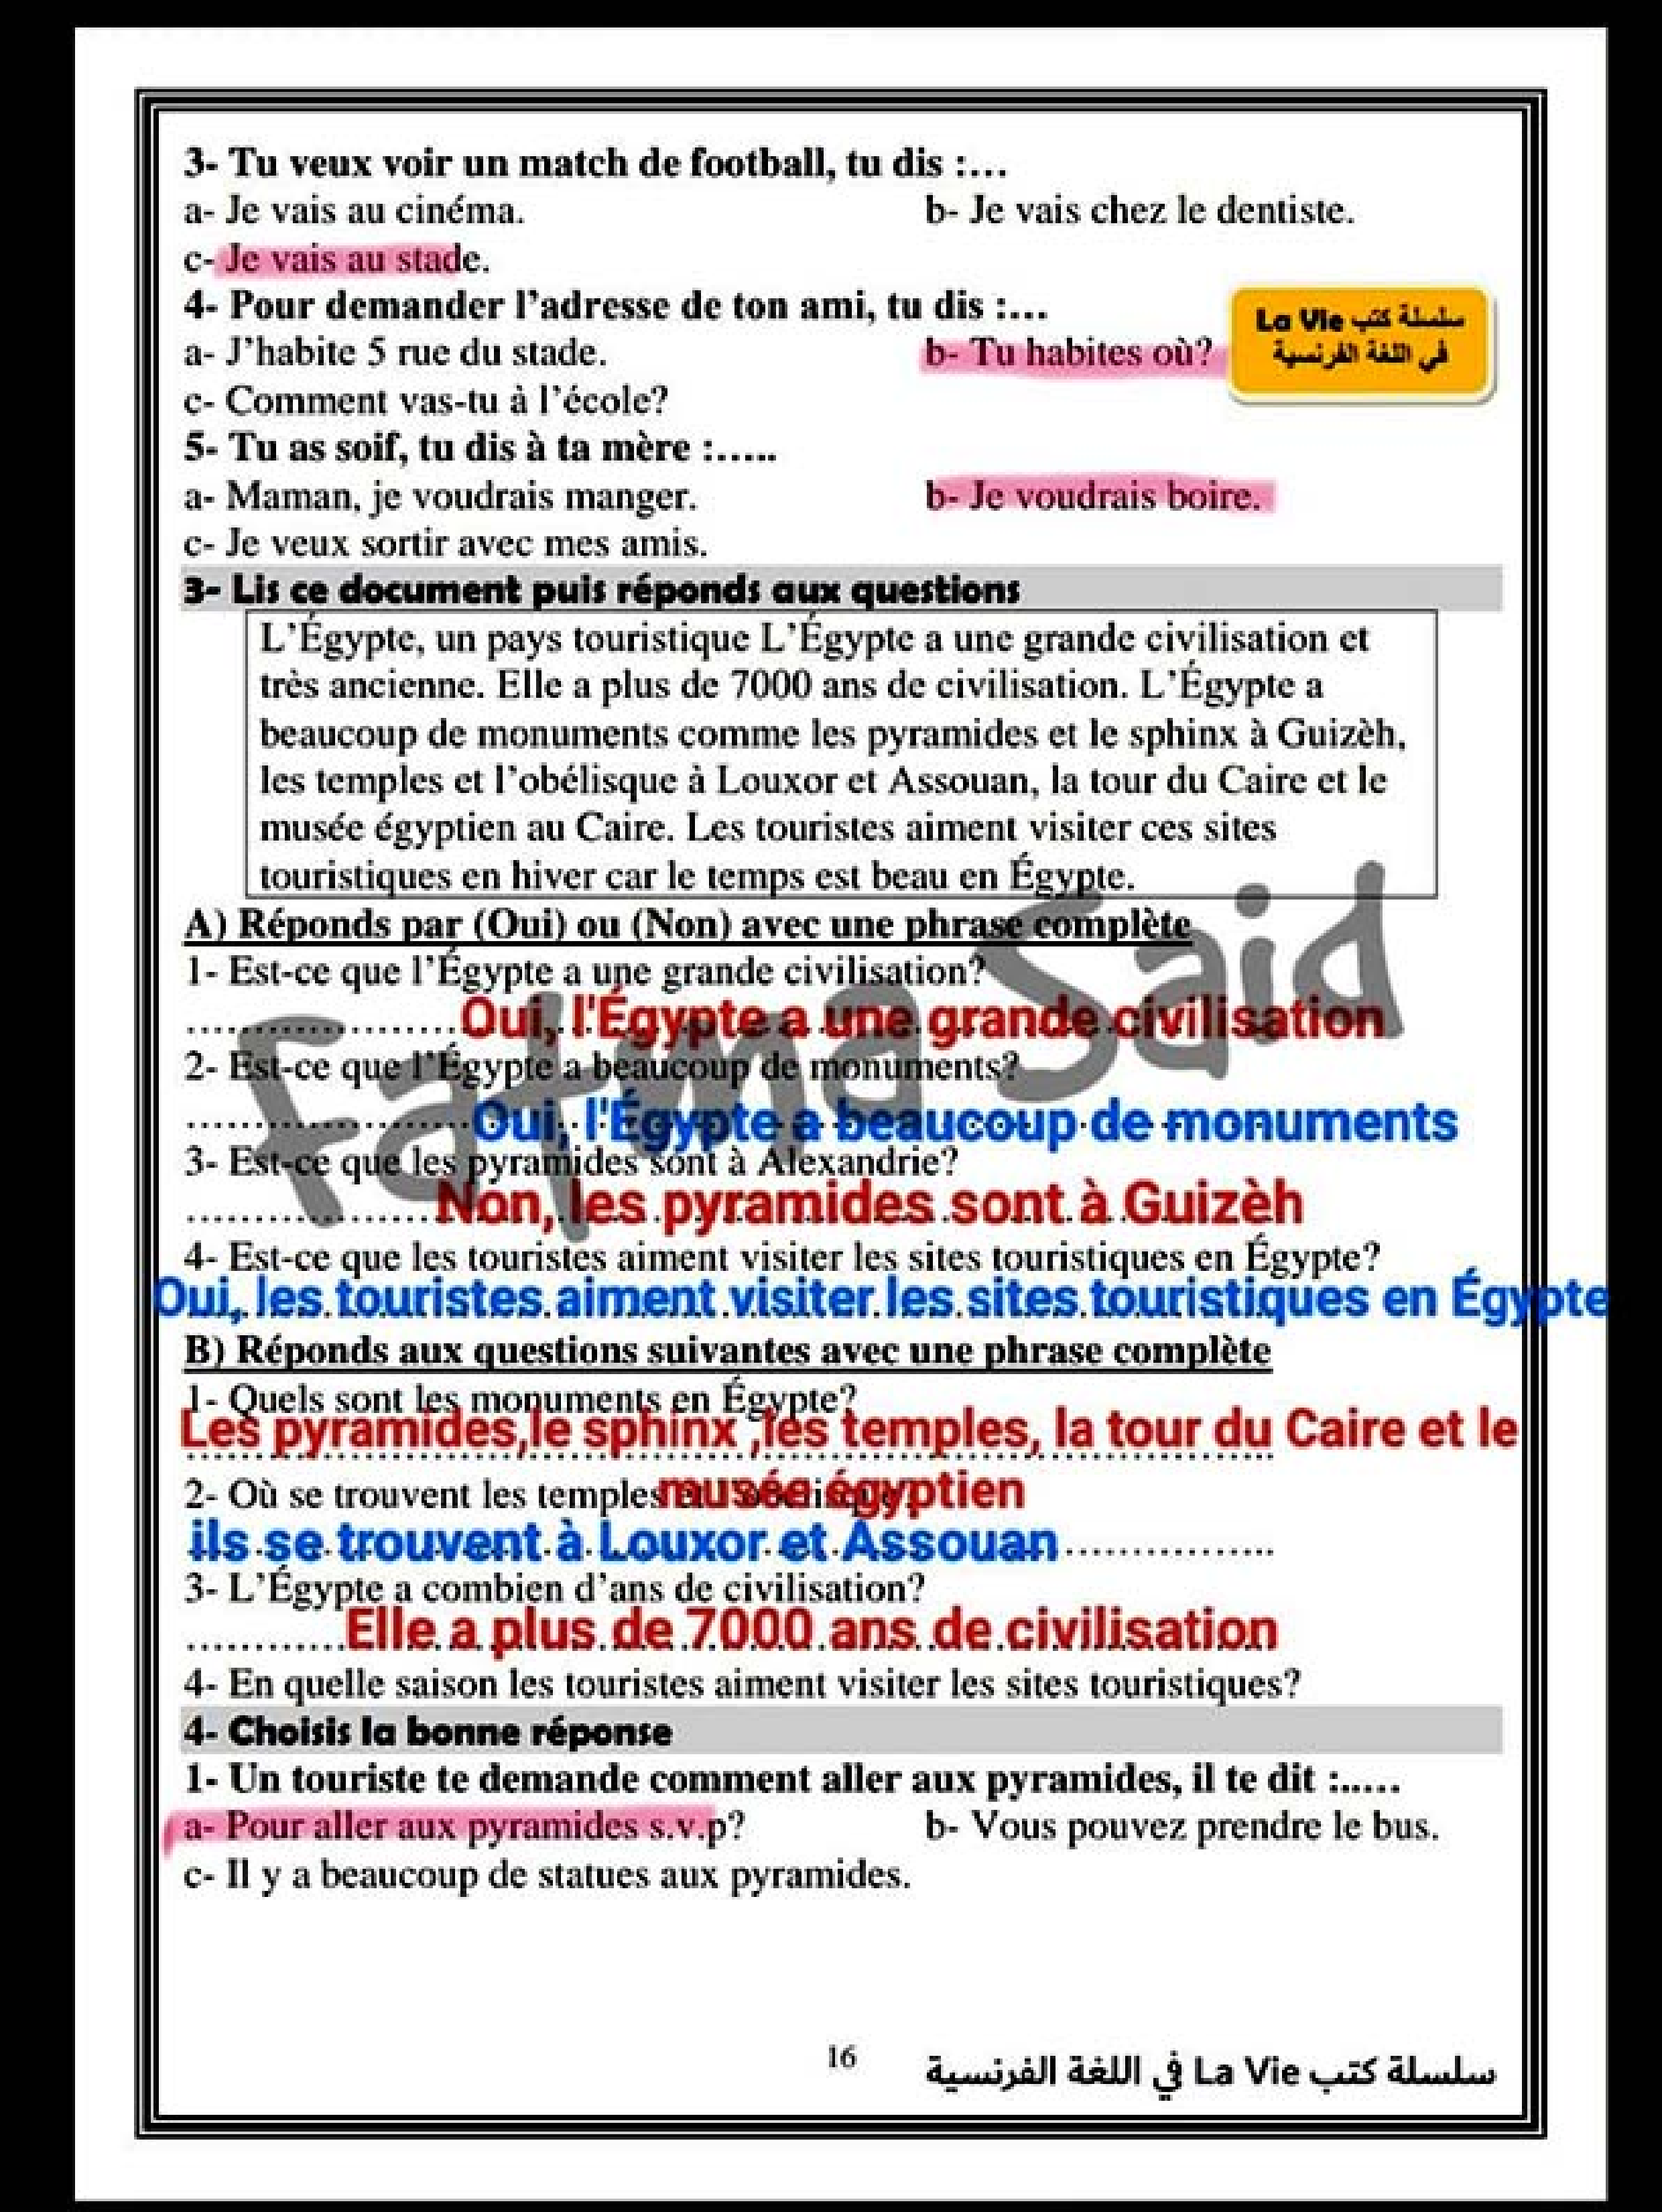 3- Tu veux voir un match de football, tu dis :...
a- Je vais au cinéma. b- Je vais chez le dentiste.
c- Je vais au stade.
4- Pour demander l'adresse de ton ami, tu dis :...
سلسلة كتب La Vie
في اللغة الفرنسية
a- J'habite 5 rue du stade. b- Tu habites où?
c- Comment vas-tu à l'école?
5- Tu as soif, tu dis à ta mère :.....
a- Maman, je voudrais manger. b- Je voudrais boire.
c- Je veux sortir avec mes amis.
3- Lis ce document puis réponds aux questions
L'Égypte, un pays touristique L'Égypte a une grande civilisation et
très ancienne. Elle a plus de 7000 ans de civilisation. L'Égypte a
beaucoup de monuments comme les pyramides et le sphinx à Guizèh,
les temples et l'obélisque à Louxor et Assouan, la tour du Caire et le
musée égyptien au Caire. Les touristes aiment visiter ces sites
touristiques en hiver car le temps est beau en Égypte.
Fatma Said
A) Réponds par (Oui) ou (Non) avec une phrase complète
1- Est-ce que l'Égypte a une grande civilisation?
Oui, l'Égypte a une grande civilisation
2- Est-ce que l'Égypte a beaucoup de monuments?
Oui, l'Égypte a beaucoup de monuments
3- Est-ce que les pyramides sont à Alexandrie?
Non, les pyramides sont à Guizèh
4- Est-ce que les touristes aiment visiter les sites touristiques en Égypte?
Oui, les touristes aiment visiter les sites touristiques en Égypte
B) Réponds aux questions suivantes avec une phrase complète
1- Quels sont les monuments en Égypte?
Les pyramides,le sphinx ,les temples, la tour du Caire et le
musée égyptien
2- Où se trouvent les temples
ils se trouvent à Louxor et Assouan
3- L'Égypte a combien d'ans de civilisation?
Elle a plus de 7000 ans de civilisation
4- En quelle saison les touristes aiment visiter les sites touristiques?
4- Choisis la bonne réponse
1- Un touriste te demande comment aller aux pyramides, il te dit :.....
a- Pour aller aux pyramides s.v.p? b- Vous pouvez prendre le bus.
c- Il y a beaucoup de statues aux pyramides.
16
سلسلة كتب La Vie في اللغة الفرنسية